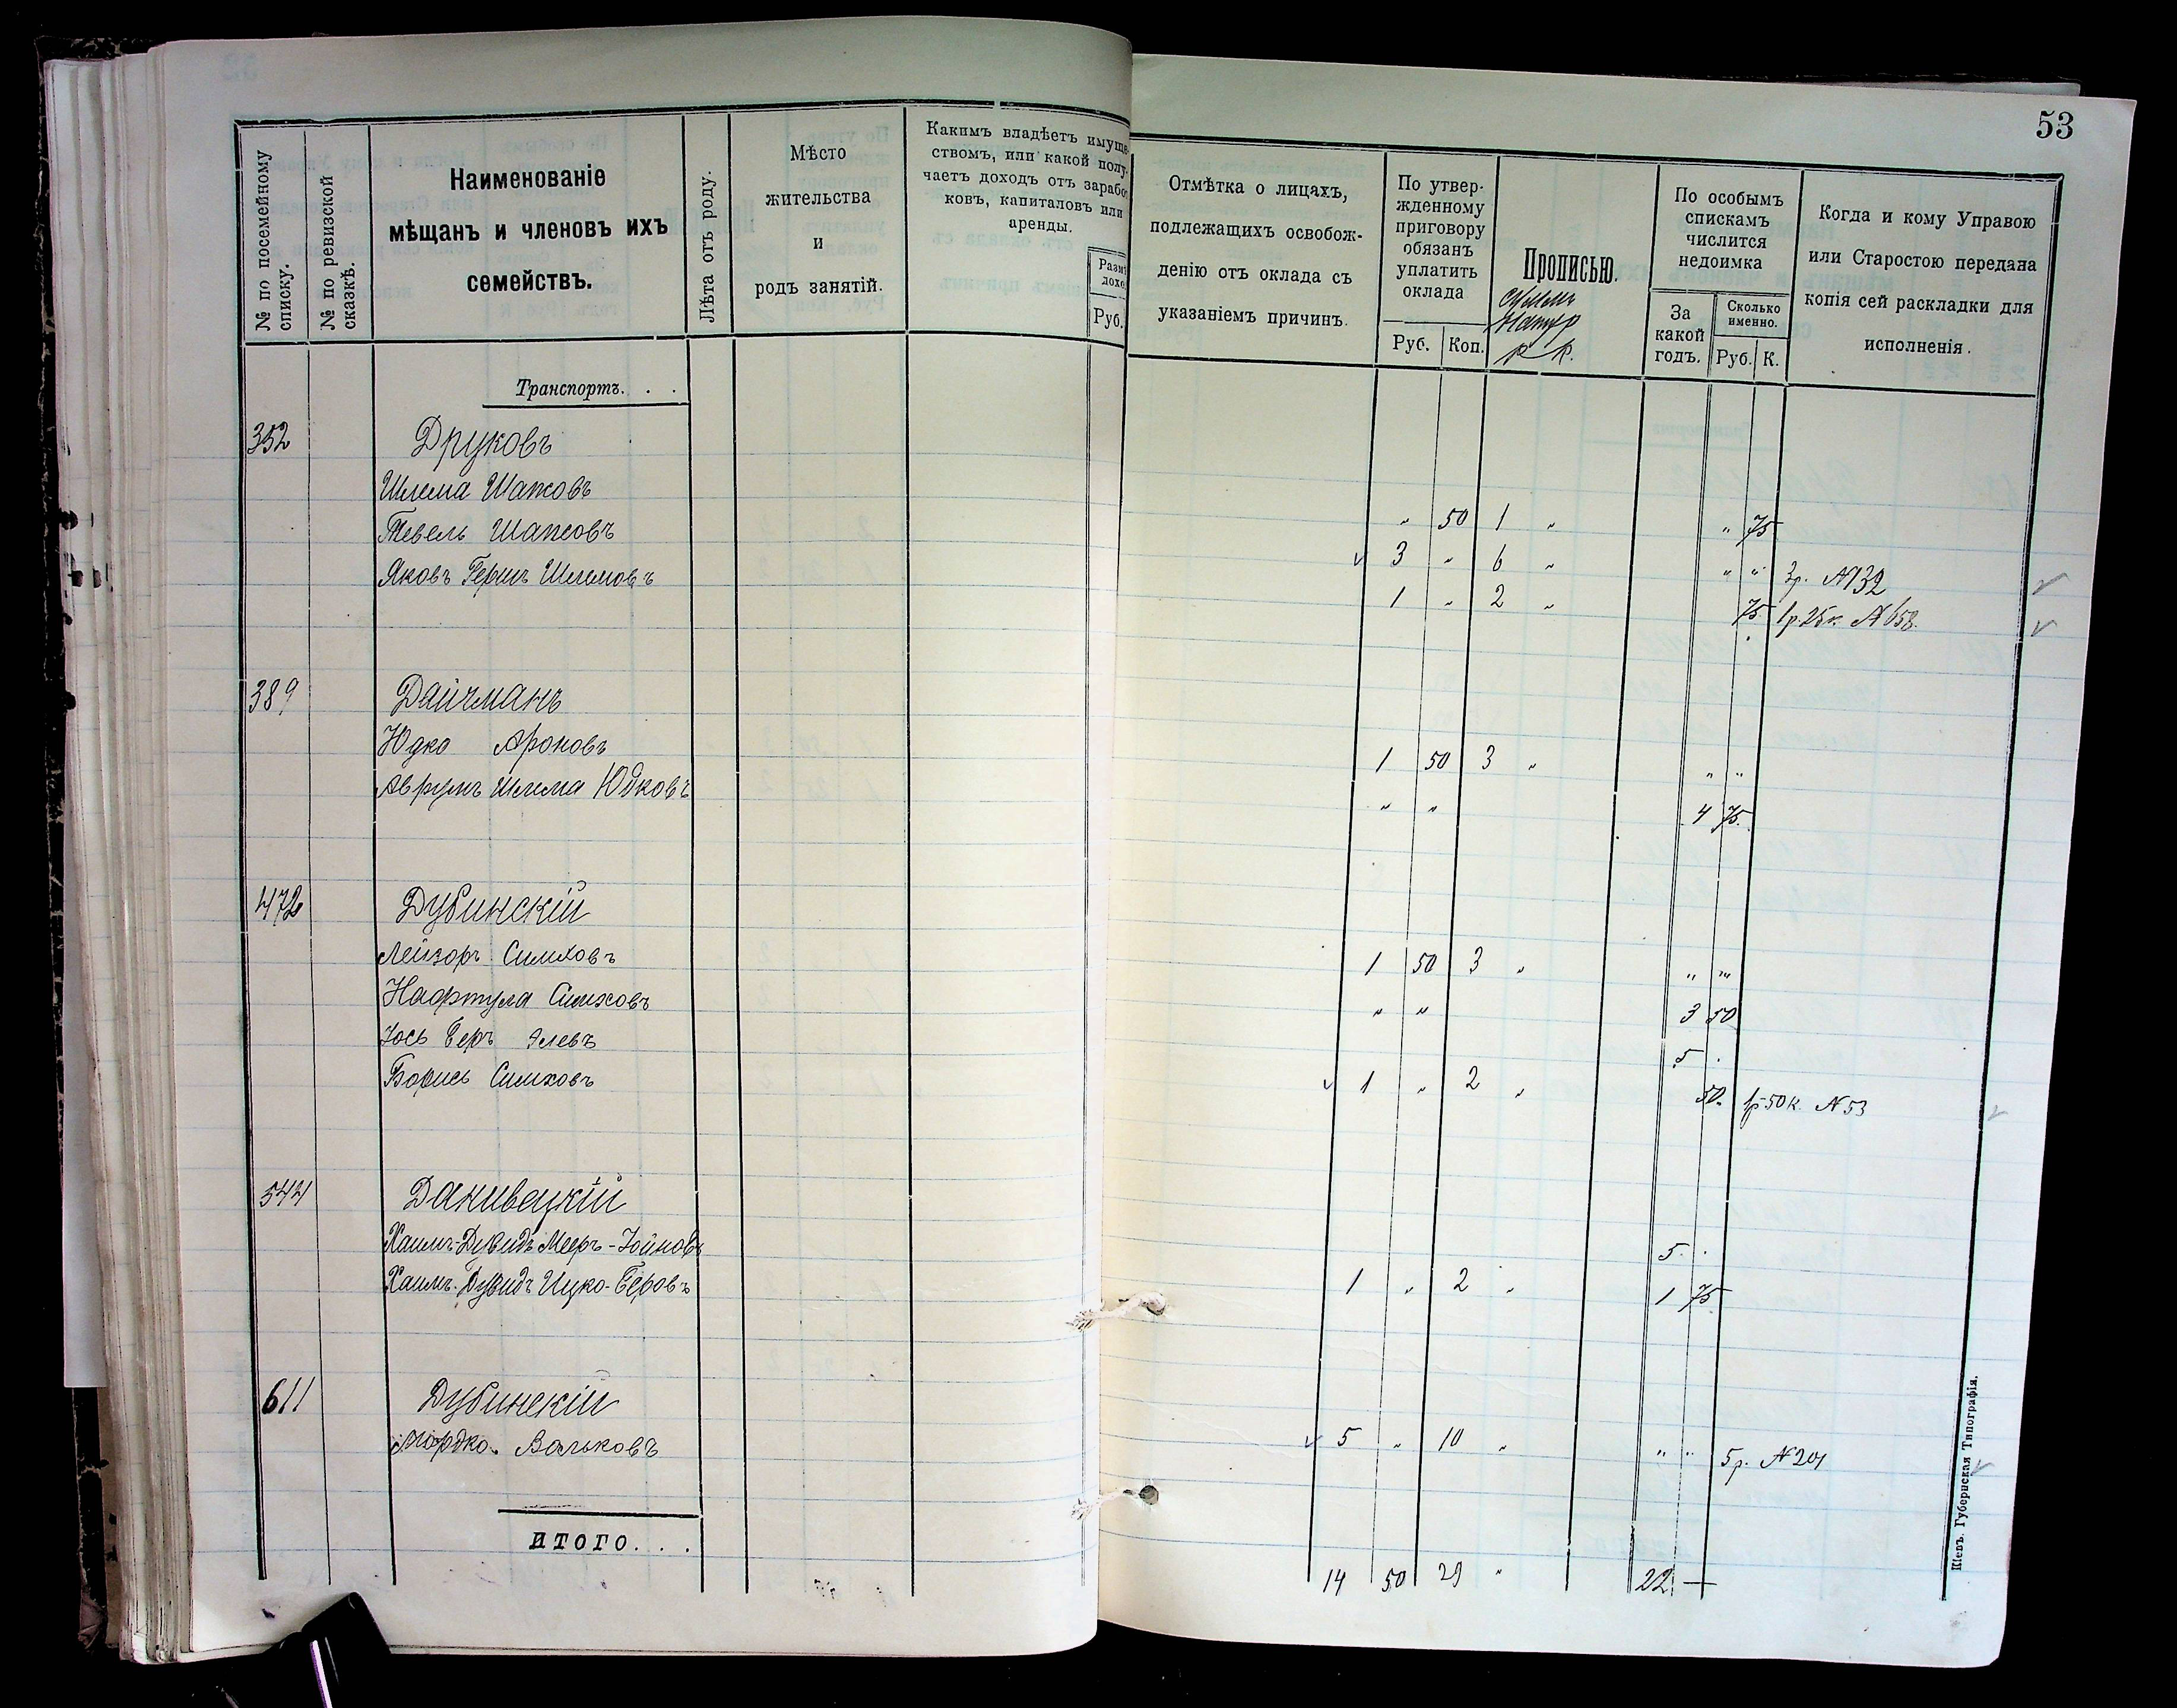 53
№ по посемейному списку.
№ по ревизской сказкѣ.
Наименованіе
мѣщанъ и членовъ ихъ
семействъ.
Лѣта отъ роду.
Мѣсто
жительства
и
родъ занятій.
Какимъ владѣетъ имуще-
ствомъ, или какой полу-
чаетъ доходъ отъ зарабо-
ковъ, капиталовъ или
аренды.
Разм
дохо
Руб.
Отмѣтка о лицахъ,
подлежащихъ освобож-
денію отъ оклада съ
указаніемъ причинъ.
По утвер-
жденному
приговору
обязанъ
уплатить
оклада
Руб. Коп.
Прописью.
р к.
По особымъ
спискамъ
числится
недоимка
За
какой
годъ.
Сколько
именно.
Руб. К.
Когда и кому Управою
или Старостою передана
копія сей раскладки для
исполненія.
Транспортъ. . .
352 Друковъ
Шлема Шапсовъ " 50 1 " " 75
Тевель Шапсовъ 3 " 6 " " " 3р. №132
Яковъ Гершъ Шлемовъ 1 " 2 " 75 1р.25к. №658.
389 Дайчманъ
Юдко Ароновъ 1 50 3 " " "
Аврумъ Шлема Юдковъ " " 4 75.
472 Дубинскій
Лейзоръ Симховъ 1 50 3 " " "
Нафтула Симховъ " " 3 50
Іось Беръ Элевъ 5 .
Борись Симховъ 1 " 2 " 50. 1р50к. №53
544 Данивецкій
Хаимъ-Дувидъ Мееръ-Іойновъ 5. .
Хаимъ-Дувидъ Ицко-Беровъ 1 " 2 " 1 75
611 Дубинскій
Мордко Вольковъ 5 " 10 " " " 5р. №201
ИТОГО. . .
14 50 29 " 22 —
Кіевъ. Губернская Типографія.